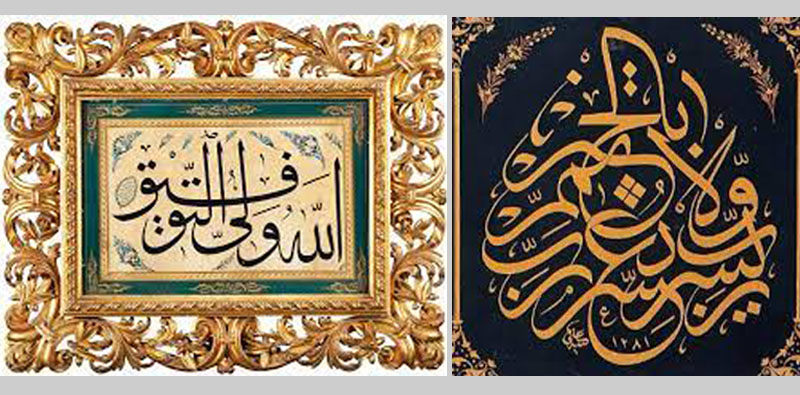 الله ولي التوفيق
رب يسر ولا تعسر رب تمم بالخير
١٢٨١